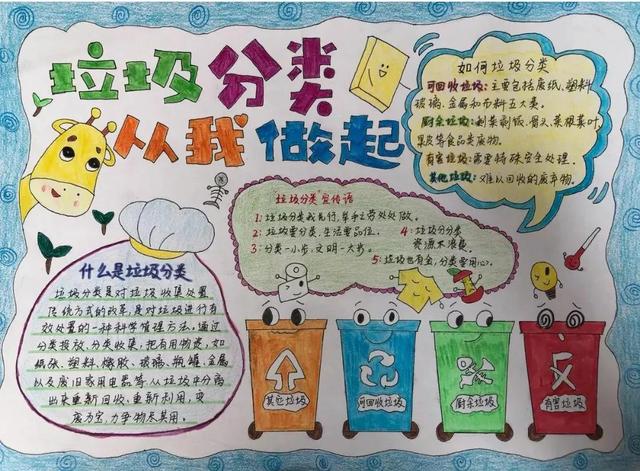 垃圾分类
从我做起
如何垃圾分类
可回收垃圾:主要包括废纸、塑料
玻璃、金属和布料五大类。
厨余垃圾:剩菜剩饭、骨头、菜根菜叶
果皮等食品类废物。
有害垃圾:需要特殊安全处理。
其他垃圾:难以回收的废弃物。
垃圾分类“宣传语
1:垃圾分类我先行,举手之劳处处做。
2:垃圾要分类,生活要品位。
3:分类一小步,文明一大步。
4:垃圾分分类
资源不浪费。
5:垃圾也有金,分类要用心。
什么是垃圾分类
垃圾分类是对垃圾收集处置
传统方式的改革,是对垃圾进行有
效处置的一种科学管理方法。通过
分类投放、分类收集,把有用物资,如
纸张、塑料、橡胶、玻璃、瓶罐、金属
以及废旧家用电器等从垃圾中分离
出来重新回收、重新利用,变
废为宝,力争物尽其用。
其它垃圾
可回收垃圾
厨余垃圾
有害垃圾